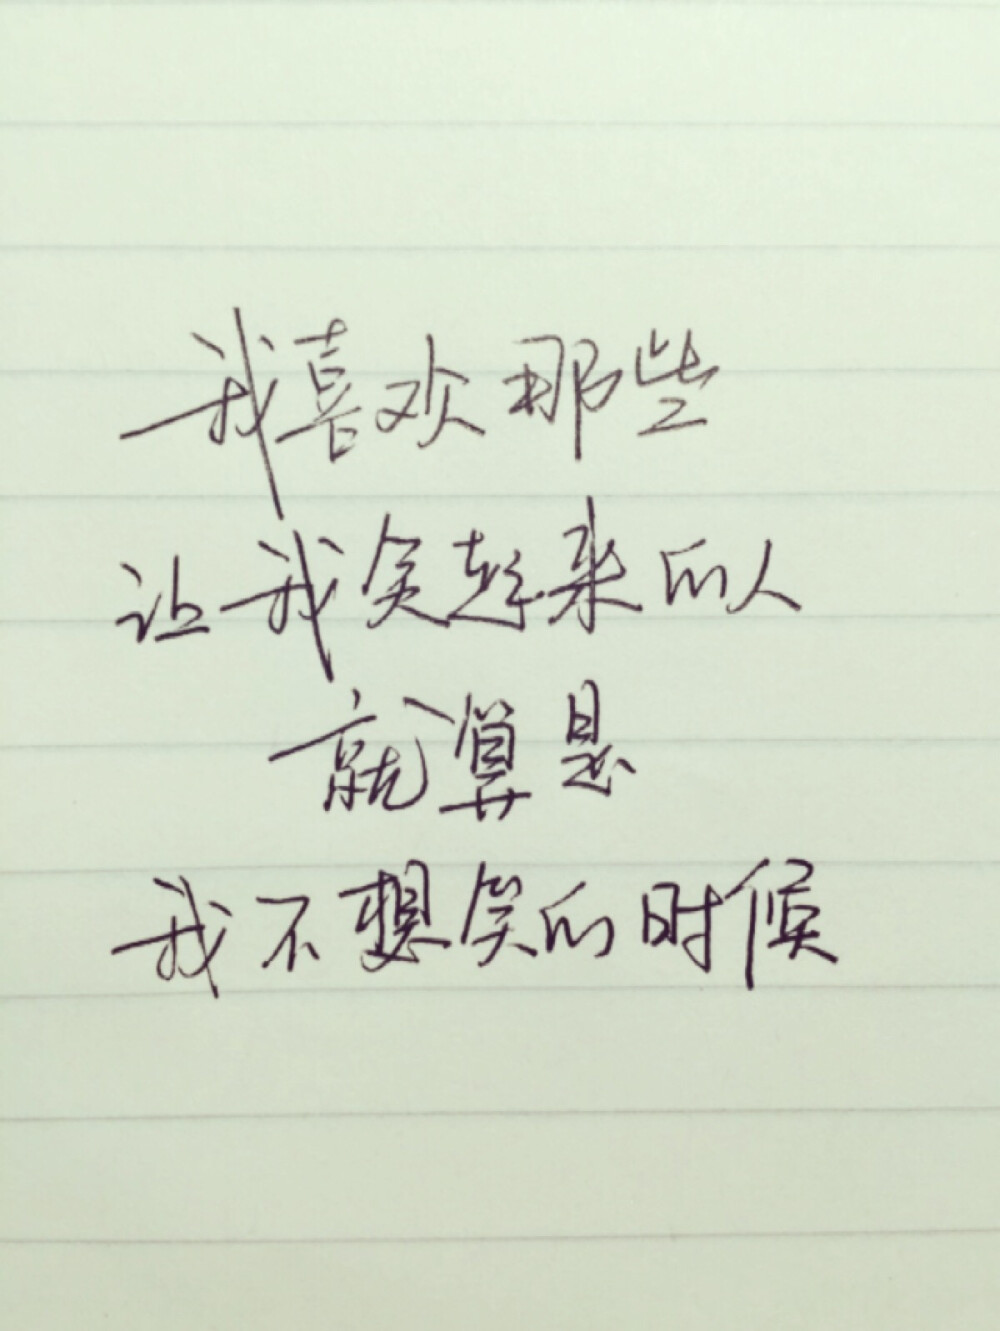 我喜欢那些
让我笑起来的人
就算是
我不想笑的时候